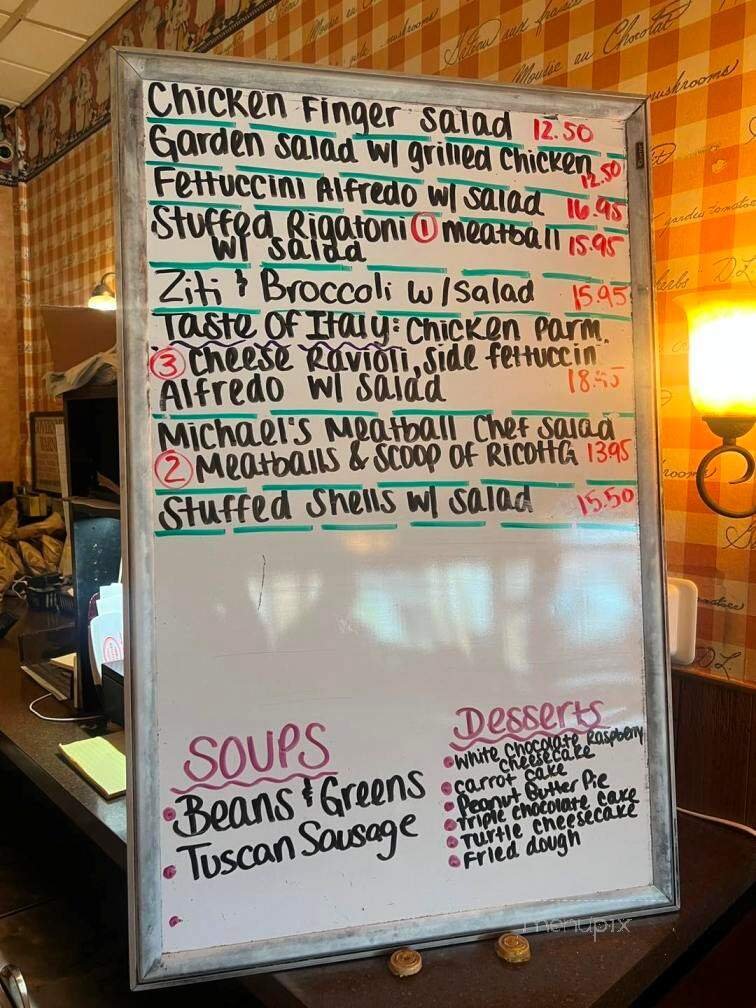 Chicken Finger Salad 12.50
Garden Salad w/ grilled Chicken 12.50
Fettuccini Alfredo w/ Salad 16.95
Stuffed Rigatoni ① meatball
w/ Salad 15.95
Ziti & Broccoli w/ Salad 15.95
Taste of Italy: Chicken Parm.
③ Cheese Ravioli, Side fettuccin
Alfredo w/ Salad
Michael's Meatball Chef Salad
② Meatballs & Scoop of Ricotta 1395
Stuffed Shells w/ Salad 15.50
Soups
• Beans & Greens
• Tuscan Sausage
•
Desserts
• White Chocolate Raspberry
Cheesecake
• Carrot Cake
• Peanut Butter Pie
• Triple Chocolate Cake
• Turtle Cheesecake
• Fried dough
Mousse au Chocolat
mushrooms
menupix